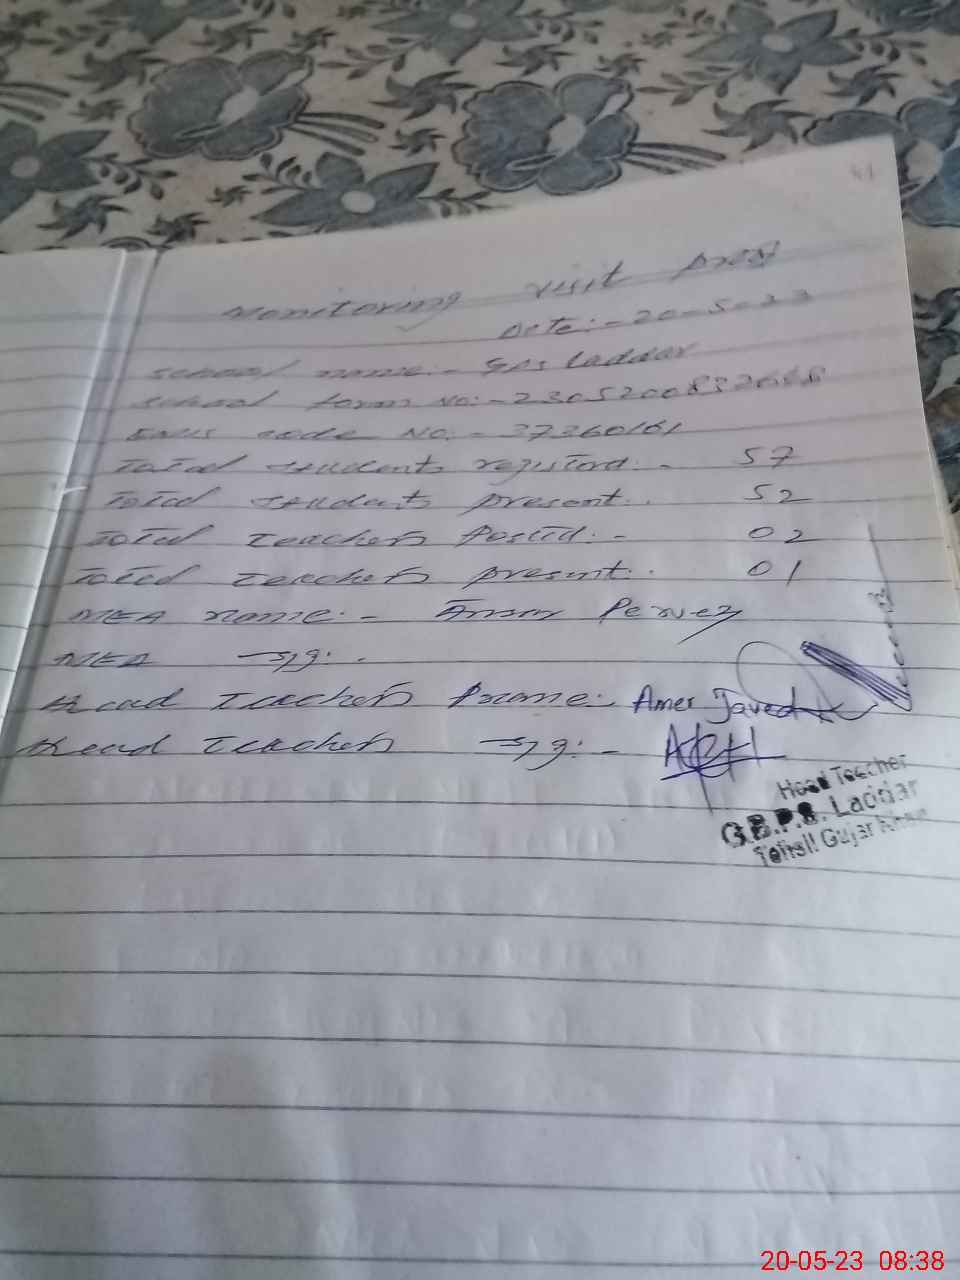 41
Monitoring visit Prof
Date:- 20-5-23
School name:- GPS Laddar
School form No:-
EMIS code No:- 37360161
Total students registord:- 57
Total students present:- 52
Total Teachers Posted:- 02
Total Teachers present:- 01
MEA name:- Pervez
MEA sig:-
Head Teachers name:- Amer Javed
Head Teachers sig:-
Head Teacher
G.B.P.S. Laddar
Tehsil Gujar Khan
20-05-23 08:38